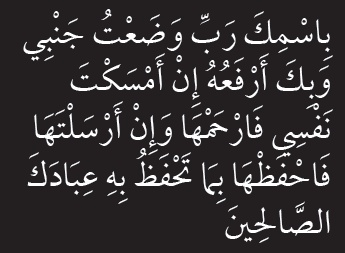 بِاسْمِكَ رَبِّ وَضَعْتُ جَنْبِي
وَبِكَ أَرْفَعُهُ إِنْ أَمْسَكْتَ
نَفْسِي فَارْحَمْهَا وَإِنْ أَرْسَلْتَهَا
فَاحْفَظْهَا بِمَا تَحْفَظُ بِهِ عِبَادَكَ
الصَّالِحِينَ